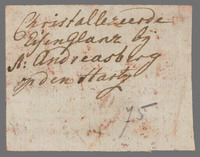 Christallezeerde
Eisenglanz bij
St. Andreasberg
op den Hartz
75